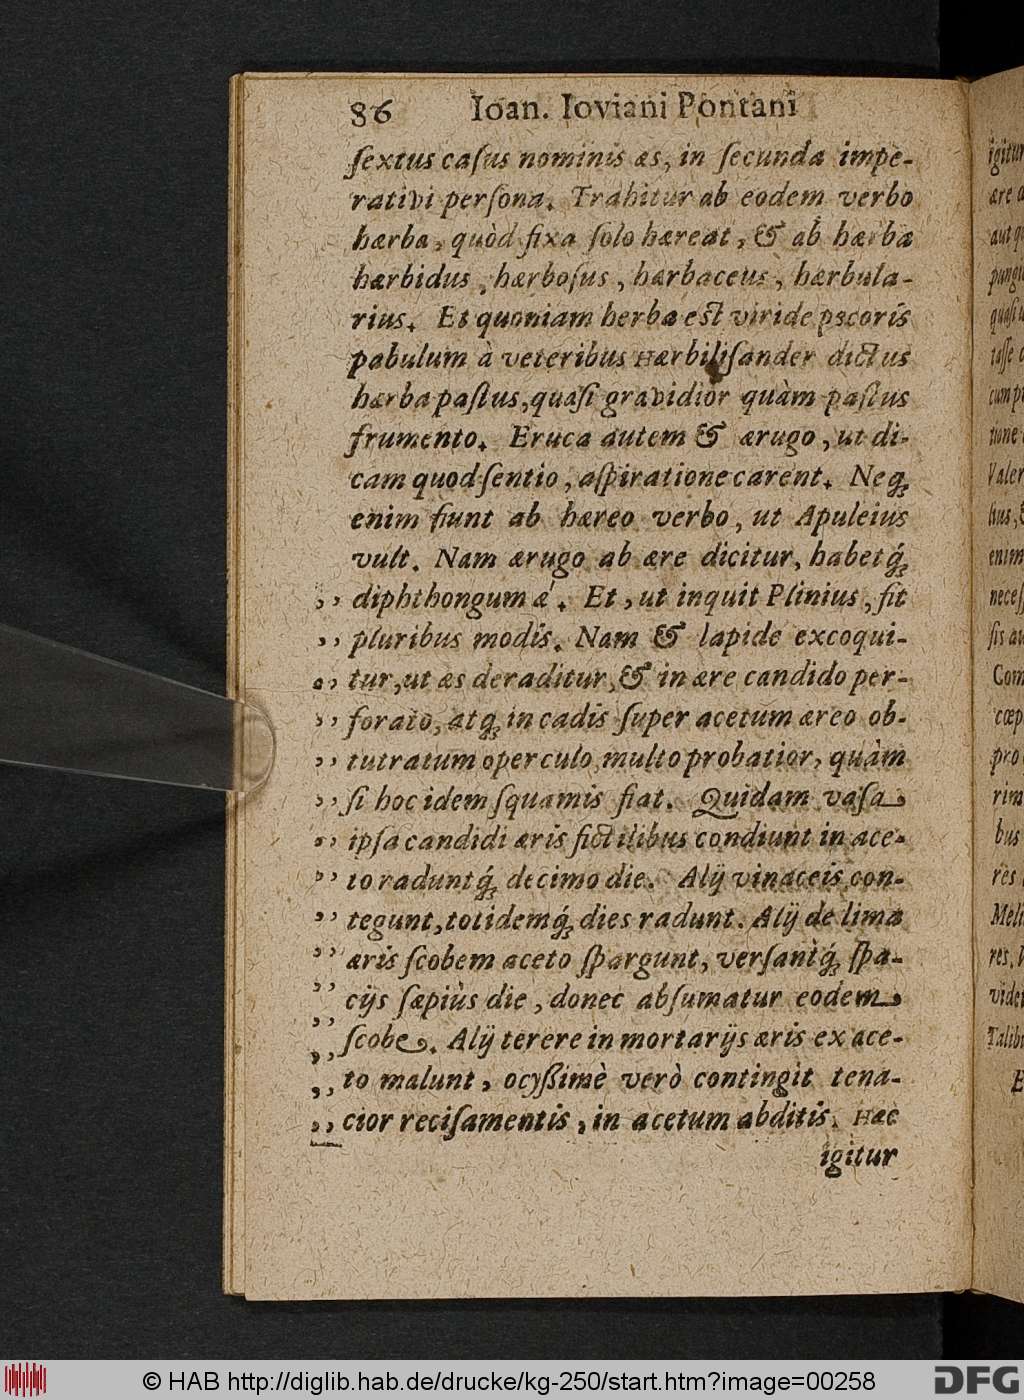 86 Ioan. Ioviani Pontani
ſextus caſus nominis æs, in ſecunda impe-
rativi perſona. Trahitur ab eodem verbo
hærba, quòd fixa ſolo hæreat, & ab hærba
hærbidus, hærboſus, hærbaceus, hærbula-
rius. Et quoniam herba eſt viride pecoris
pabulum à veteribus Hærbiliſander dictus
hærba paſtus, quaſi gravidior quàm paſtus
frumento. Eruca autem & ærugo, ut di-
cam quod ſentio, aſpiratione carent. Neq́ꝫ
enim fiunt ab hæreo verbo, ut Apuleius
vult. Nam ærugo ab ære dicitur, habetq́ꝫ
,, diphthongum æ. Et, ut inquit Plinius, fit
,, pluribus modis. Nam & lapide excoqui-
,, tur, ut æs deraditur, & in ære candido per-
,, forato, atqꝫ in cadis ſuper acetum æreo ob-
,, tutratum operculo, multo probatior, quàm
,, ſi hoc idem ſquamis fiat. Quidam vaſa
,, ipſa candidi æris fictilibus condiunt in ace-
,, to raduntq́ꝫ decimo die. Alij vinaceis con-
,, tegunt, totidemq́ꝫ dies radunt. Alij de lima
,, æris ſcobem aceto ſpargunt, verſantq́ꝫ ſpa-
,, cijs ſæpiùs die, donec abſumatur eodem
,, ſcobe. Alij terere in mortarijs æris ex ace-
,, to malunt, ocyßimè verò contingit tena-
,, cior reciſamentis, in acetum abditis. Hæc
igitur
© HAB http://diglib.hab.de/drucke/kg-250/start.htm?image=00258
DFG